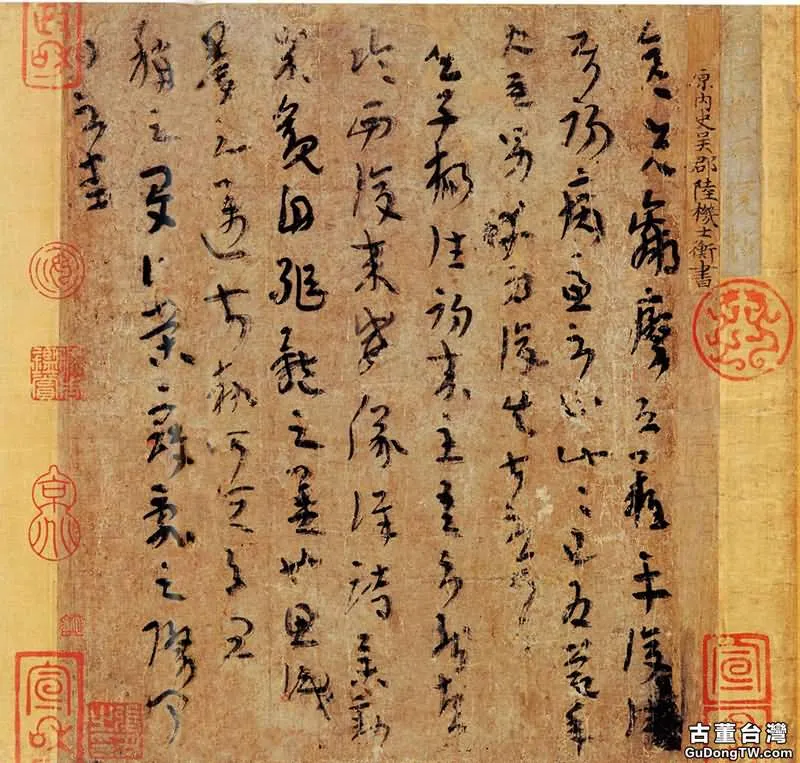 原內史吳郡陸機士衡書
彥先羸瘵恐難平復往屬
初病慮不止此此已為慶承
使唯男幸為復失前憂耳
吳子楊往初來主吾不能盡
臨西復來威儀詳跱舉動
成觀自軀體之美也思識
量之邁前執所恒有宜
稱之夏伯榮寇亂之際聞
問不悉
宣和
政和
宣和
古董台灣
GuDongTW.com